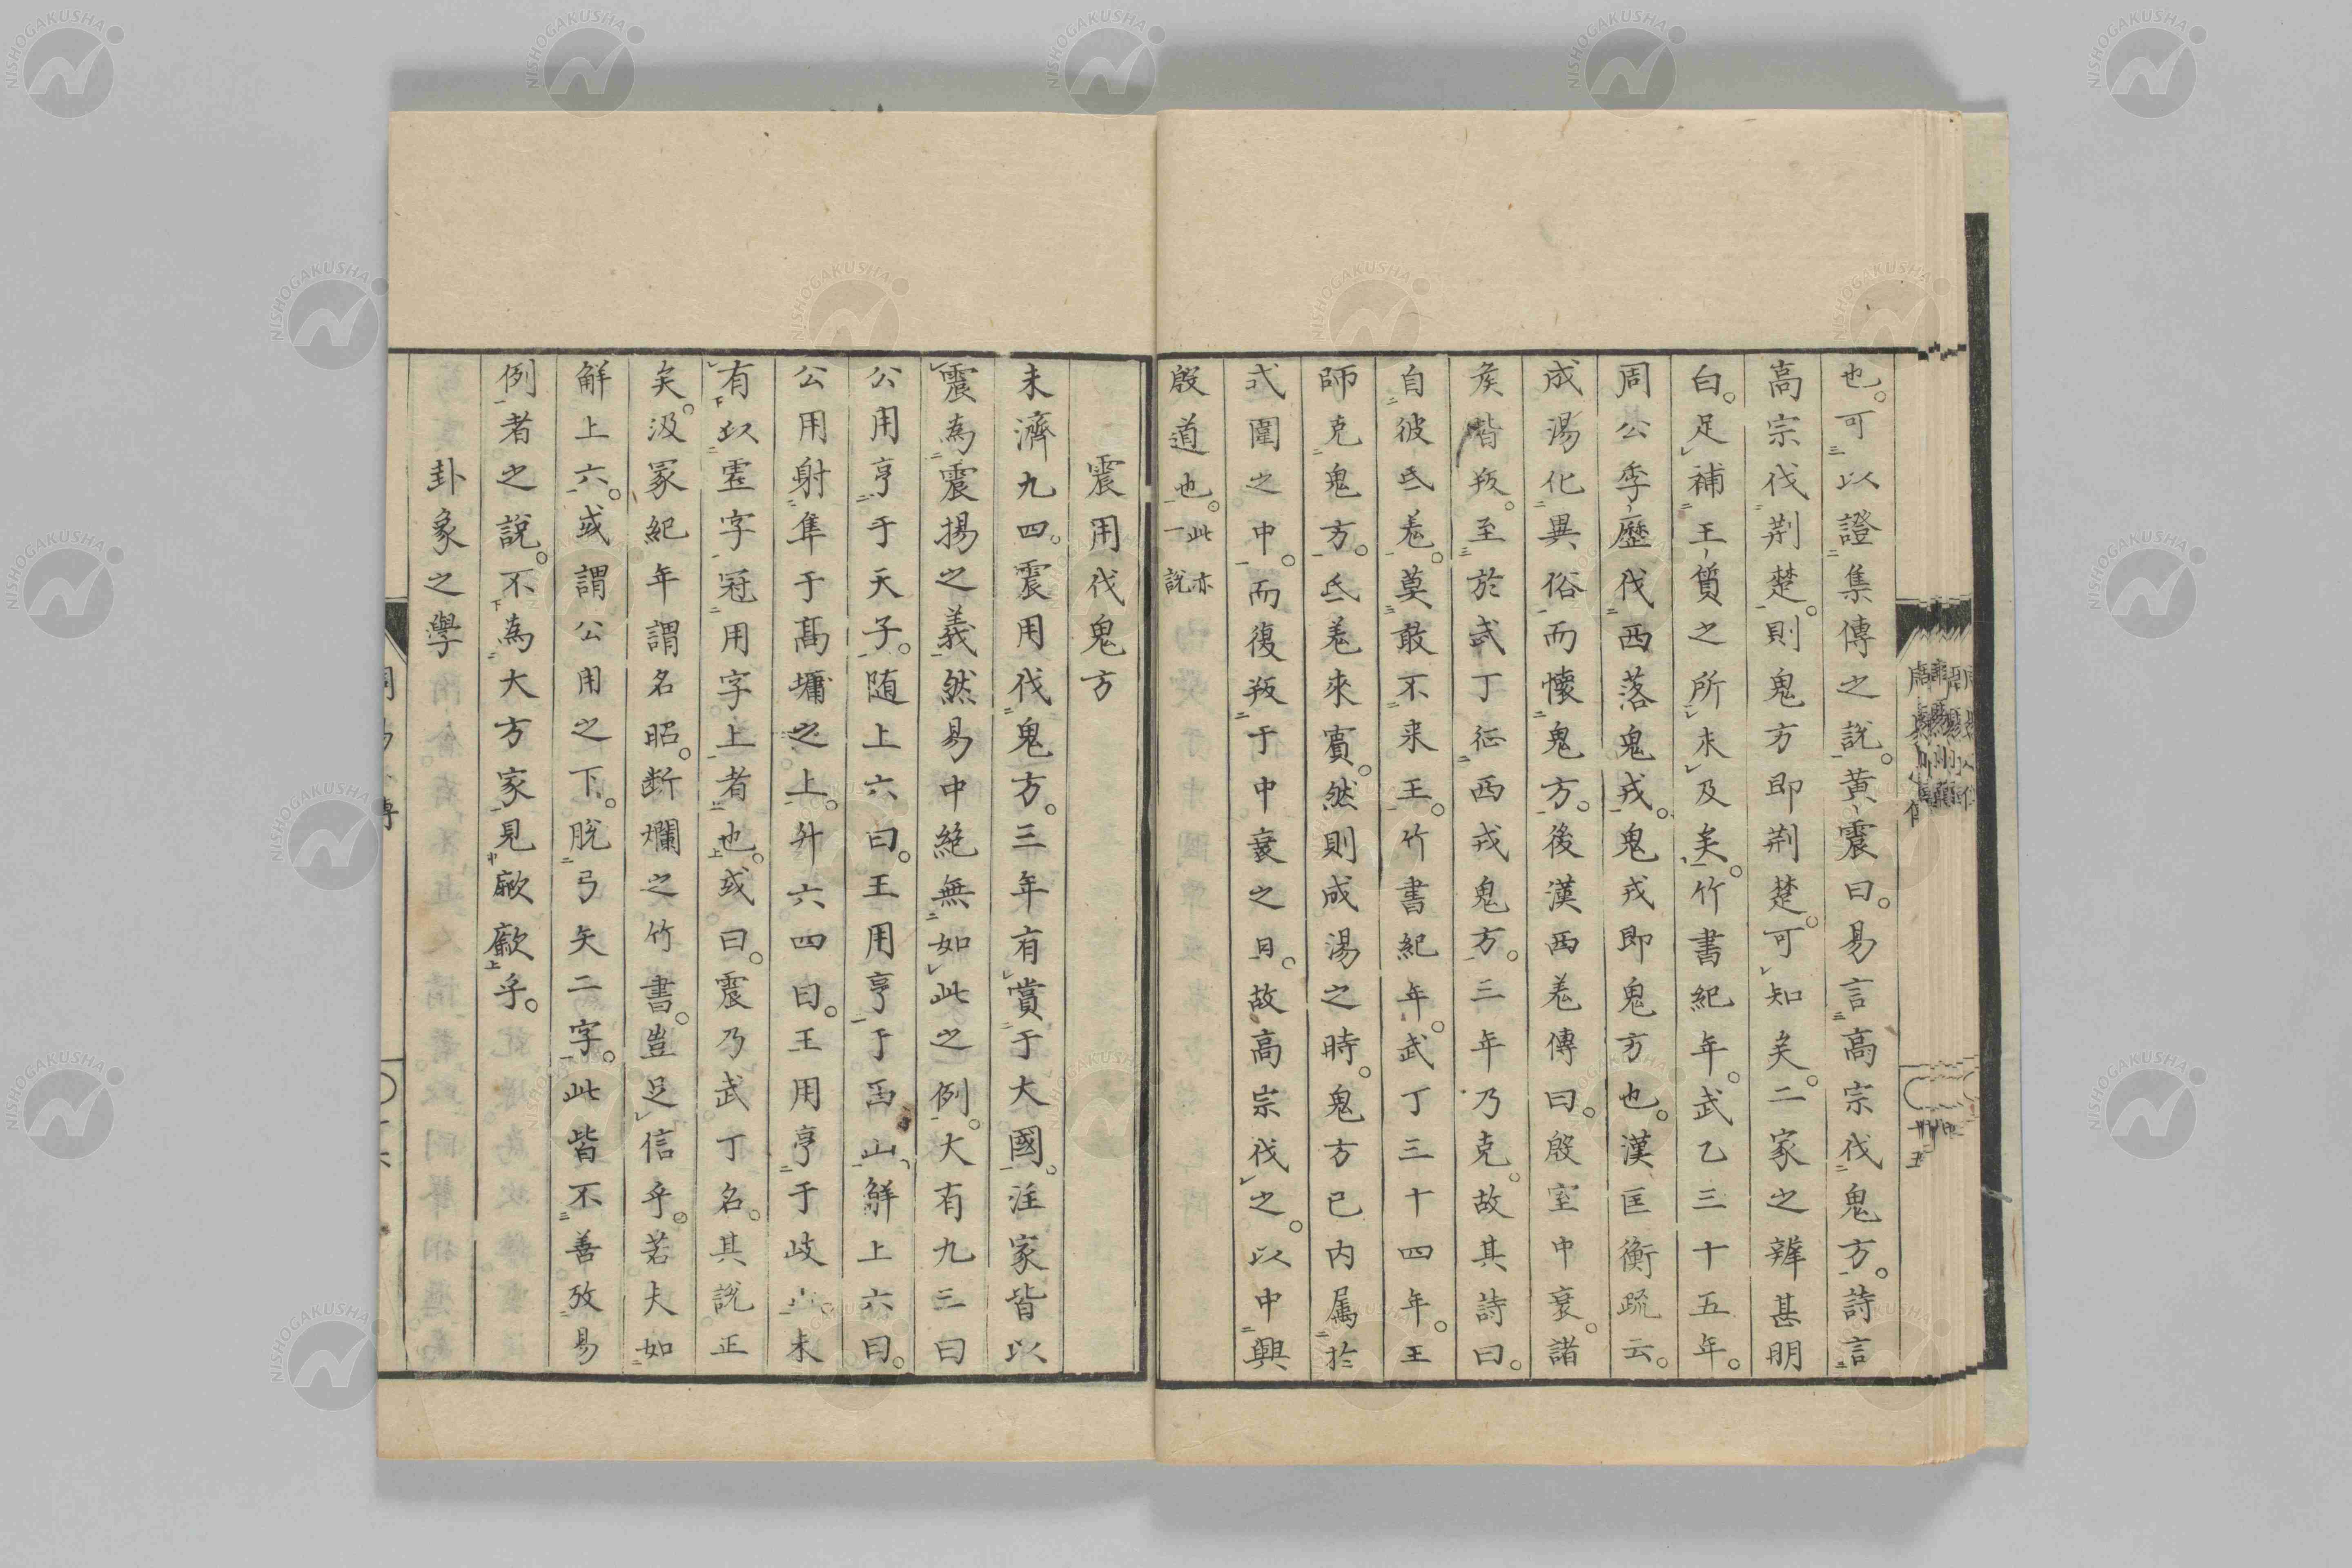 也。可以證集傳之說。黃震曰。易言高宗伐鬼方。詩言
高宗伐荆楚。則鬼方即荆楚。可知矣。二家之辨甚明
白。足補王質之所未及矣。竹書紀年。武乙三十五年。
周公季歷伐西落鬼戎。鬼戎即鬼方也。漢匡衡疏云。
成湯化異俗而懷鬼方。後漢西羗傳曰。殷室中衰。諸
矦皆叛。至於武丁征西戎鬼方。三年乃克。故其詩曰。
自彼氐羗。莫敢不来王。竹書紀年。武丁三十四年。王
師克鬼方。氐羗來賓。然則成湯之時。鬼方已内属於
式圍之中。而復叛于中衰之日。故高宗伐之。以中興
殷道也。此亦一說
震用伐鬼方
未濟九四。震用伐鬼方。三年有賞于大國。注家皆以
震為震揚之義。然易中絶無如此之例。大有九三曰
公用亨于天子。随上六曰。王用亨于西山。解上六曰。
公用射隼于高墉之上。升六四曰。王用亨于岐山。未
有以虚字冠用字上者也。或曰。震乃武丁名。其說正
矣。汲冢紀年謂名昭。断爛之竹書。豈足信乎。若夫如
解上六。或謂公用之下。脫弓矢二字。此皆不善攷易
例者之說。不為大方家見厫厫乎。
卦象之學
NISHOGAKUSHA